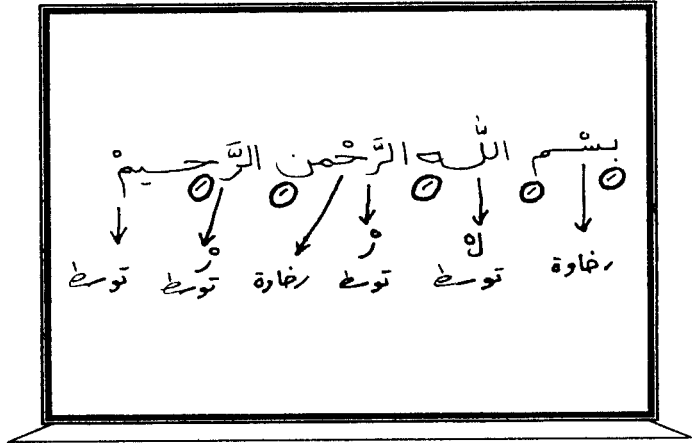 بسْم اللّٰه الرَّحْمن الرَّحيمْ
لْ رْ رْ
رخاوة توسط توسط رخاوة توسط توسط